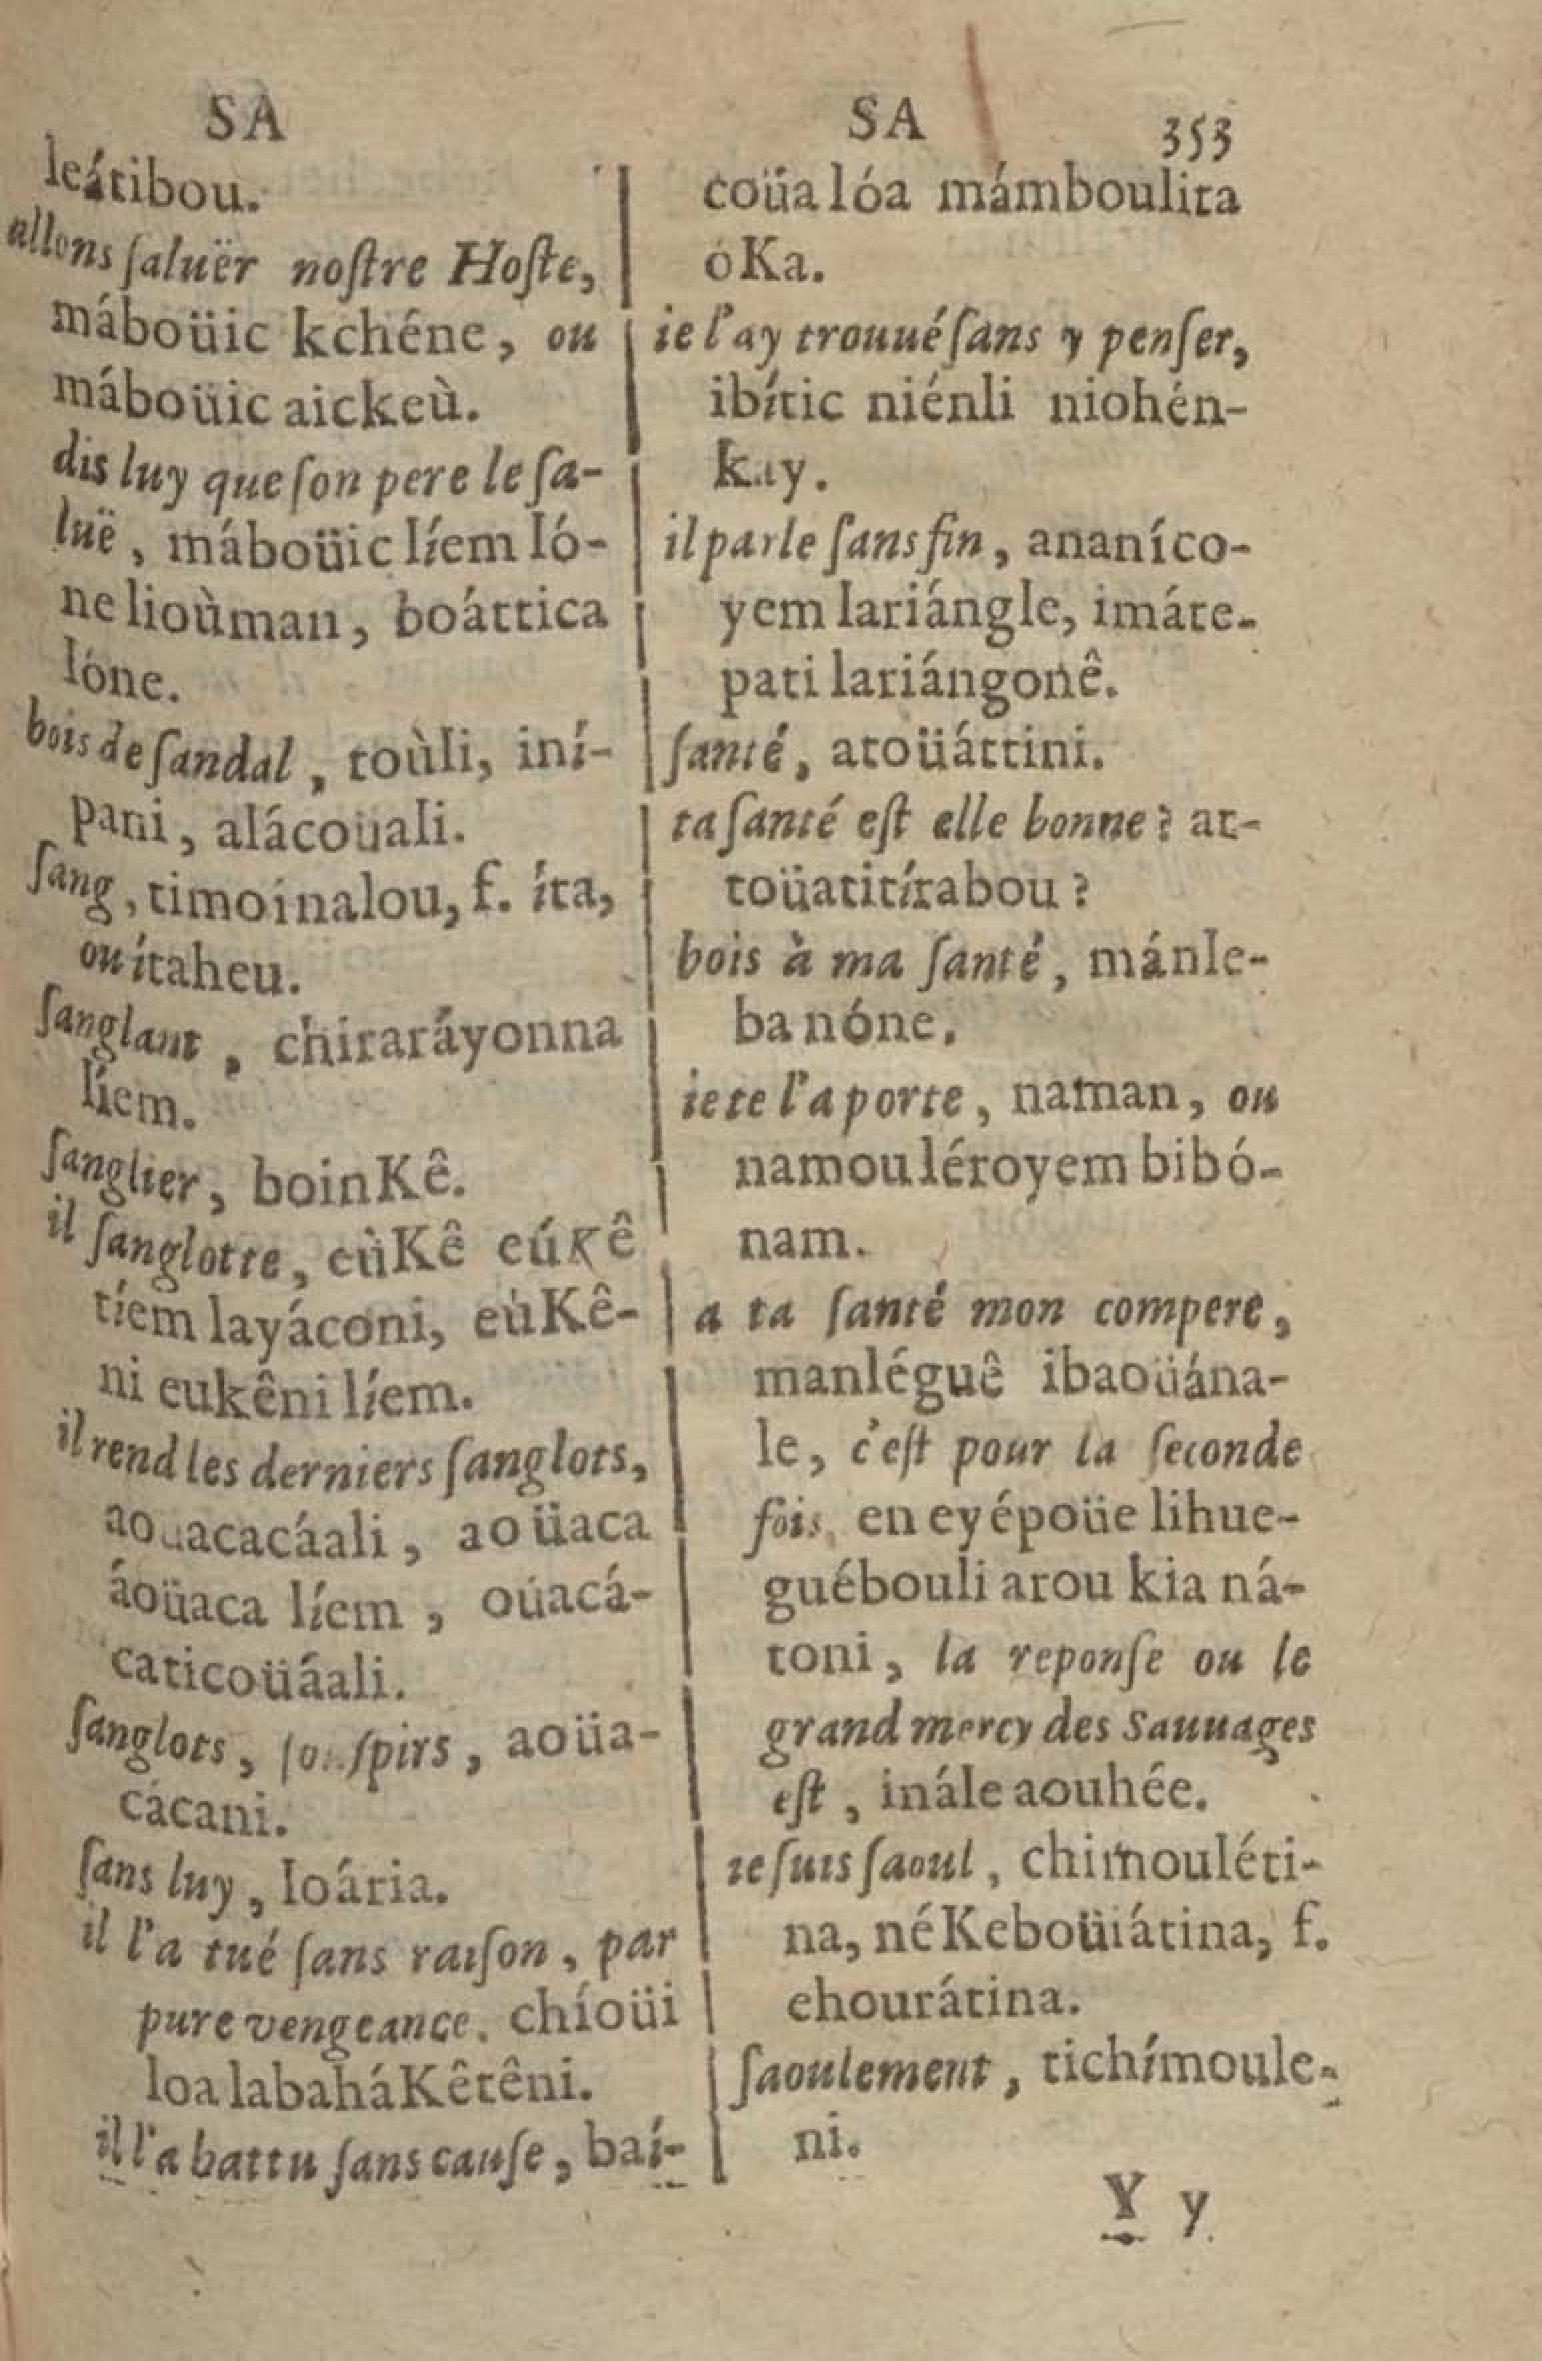 SA
leátibou.
allons ſaluër noſtre Hoſte,
máboüic kchéne, ou
máboüic aickeù.
dis luy que ſon pere le ſa-
luë, máboüic líem ló-
ne lioùman, boáttica
lóne.
bois de ſandal, toùli, iní-
pani, alácoüali.
ſang, timoínalou, f. íta,
ou ítaheu.
ſanglant, chiraráyonna
líem.
ſanglier, boinKê.
il ſanglotte, eùKê eúKê
tíem layáconi, eùKê-
ni eukêni líem.
il rend les derniers ſanglots,
aoüacacáali, aoüaca
áoüaca líem, oúacá-
caticoüáali.
ſanglots, ſouſpirs, aoüa-
cácani.
ſans luy, loária.
il l'a tué ſans raiſon, par
pure vengeance. chíoüi
loa labaháKêtêni.
il l'a battu ſans cauſe, baí-
SA 353
coüa lóa mámboulita
óKa.
ie l'ay trouué ſans y penſer,
ibític niénli niohén-
kay.
il parle ſans fin, ananíco-
yem lariángle, imáte-
pati lariángonê.
ſanté, atoüáttini.
ta ſanté eſt elle bonne? at-
toüatitírabou?
bois à ma ſanté, mánle-
ba nóne.
ie te l'a porte, naman, ou
namouléroyem bibó-
nam.
a ta ſanté mon compere,
manléguê ibaoüána-
le, c'eſt pour la ſeconde
fois, en eyépoüe lihue-
guébouli arou kia ná-
toni, la reponſe ou le
grand mercy des Sauuages
eſt, inále aouhée.
ie ſuis ſaoul, chimouléti-
na, néKeboüiátina, f.
chourátina.
ſaoulement, tichímoule-
ni.
Y y